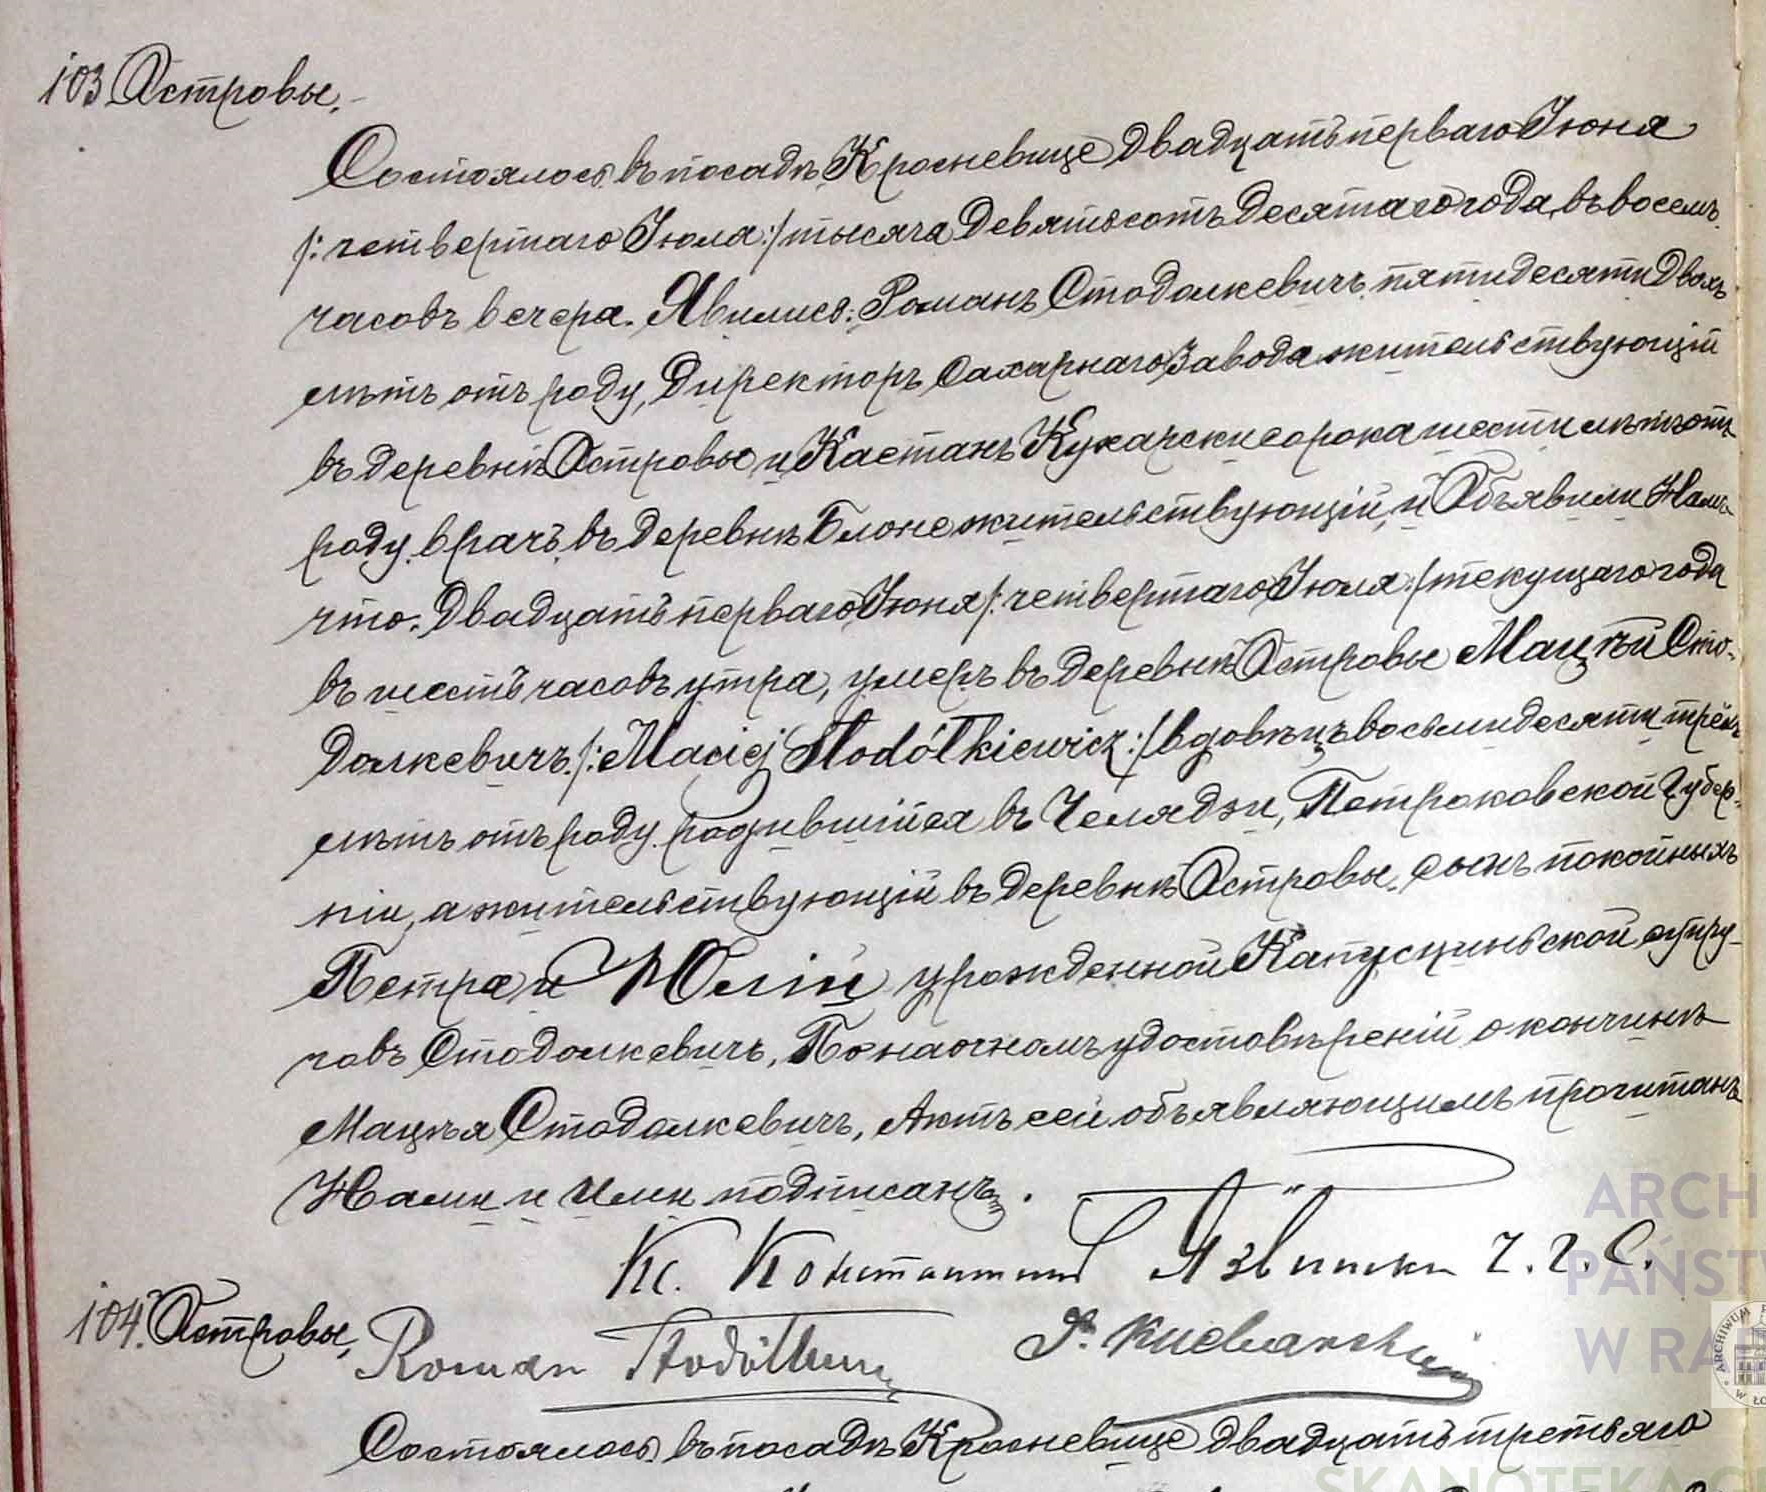 103 Островы.
Состоялось въ посадѣ Кросневице двадцать перваго Іюня
/: четвертаго Іюля :/ тысяча девятьсотъ десятаго года, въ восемь
часовъ вечера. Явились: Романъ Стодолкевичъ, пятидесяти двохъ
лѣтъ отъ роду, Директоръ Сахарнаго Завода жительствующій
въ деревнѣ Островы, и Каетанъ Кухарски сорока шести лѣтъ отъ
роду, врачъ, въ деревнѣ Блоне жительствующій, и Объявили Намъ
что: Двадцать перваго Іюня /: четвертаго Іюля :/ текущаго года
въ шесть часовъ утра, умеръ въ деревнѣ Островы Мацѣй Сто-
долкевичъ /: Maciej Stodółkiewicz :/ вдовѣцъ восьмидесяти трёхъ
лѣтъ отъ роду, родившійся въ Челядзи, Петроковской Губер-
ніи, а жительствующій въ деревнѣ Островы, сынъ покойныхъ
Петра и Юліи урожденной Капусциньской супру-
говъ Стодолкевичъ, По наочномъ удостовѣреній о кончинѣ
Мацѣя Стодолкевичъ, Актъ сей объявляющимъ прочитанъ
Нами и Ими подписанъ.
Кс. Константинъ Язвински Ч. Г. С.
Roman Stodółkiewicz Kucharski
104. Островы,
Состоялось въ посадѣ Кросневице двадцать третьяго
ARCH
PAŃST
W RA
ARCHIWUM
W ŁO
SKANOTEKA.G